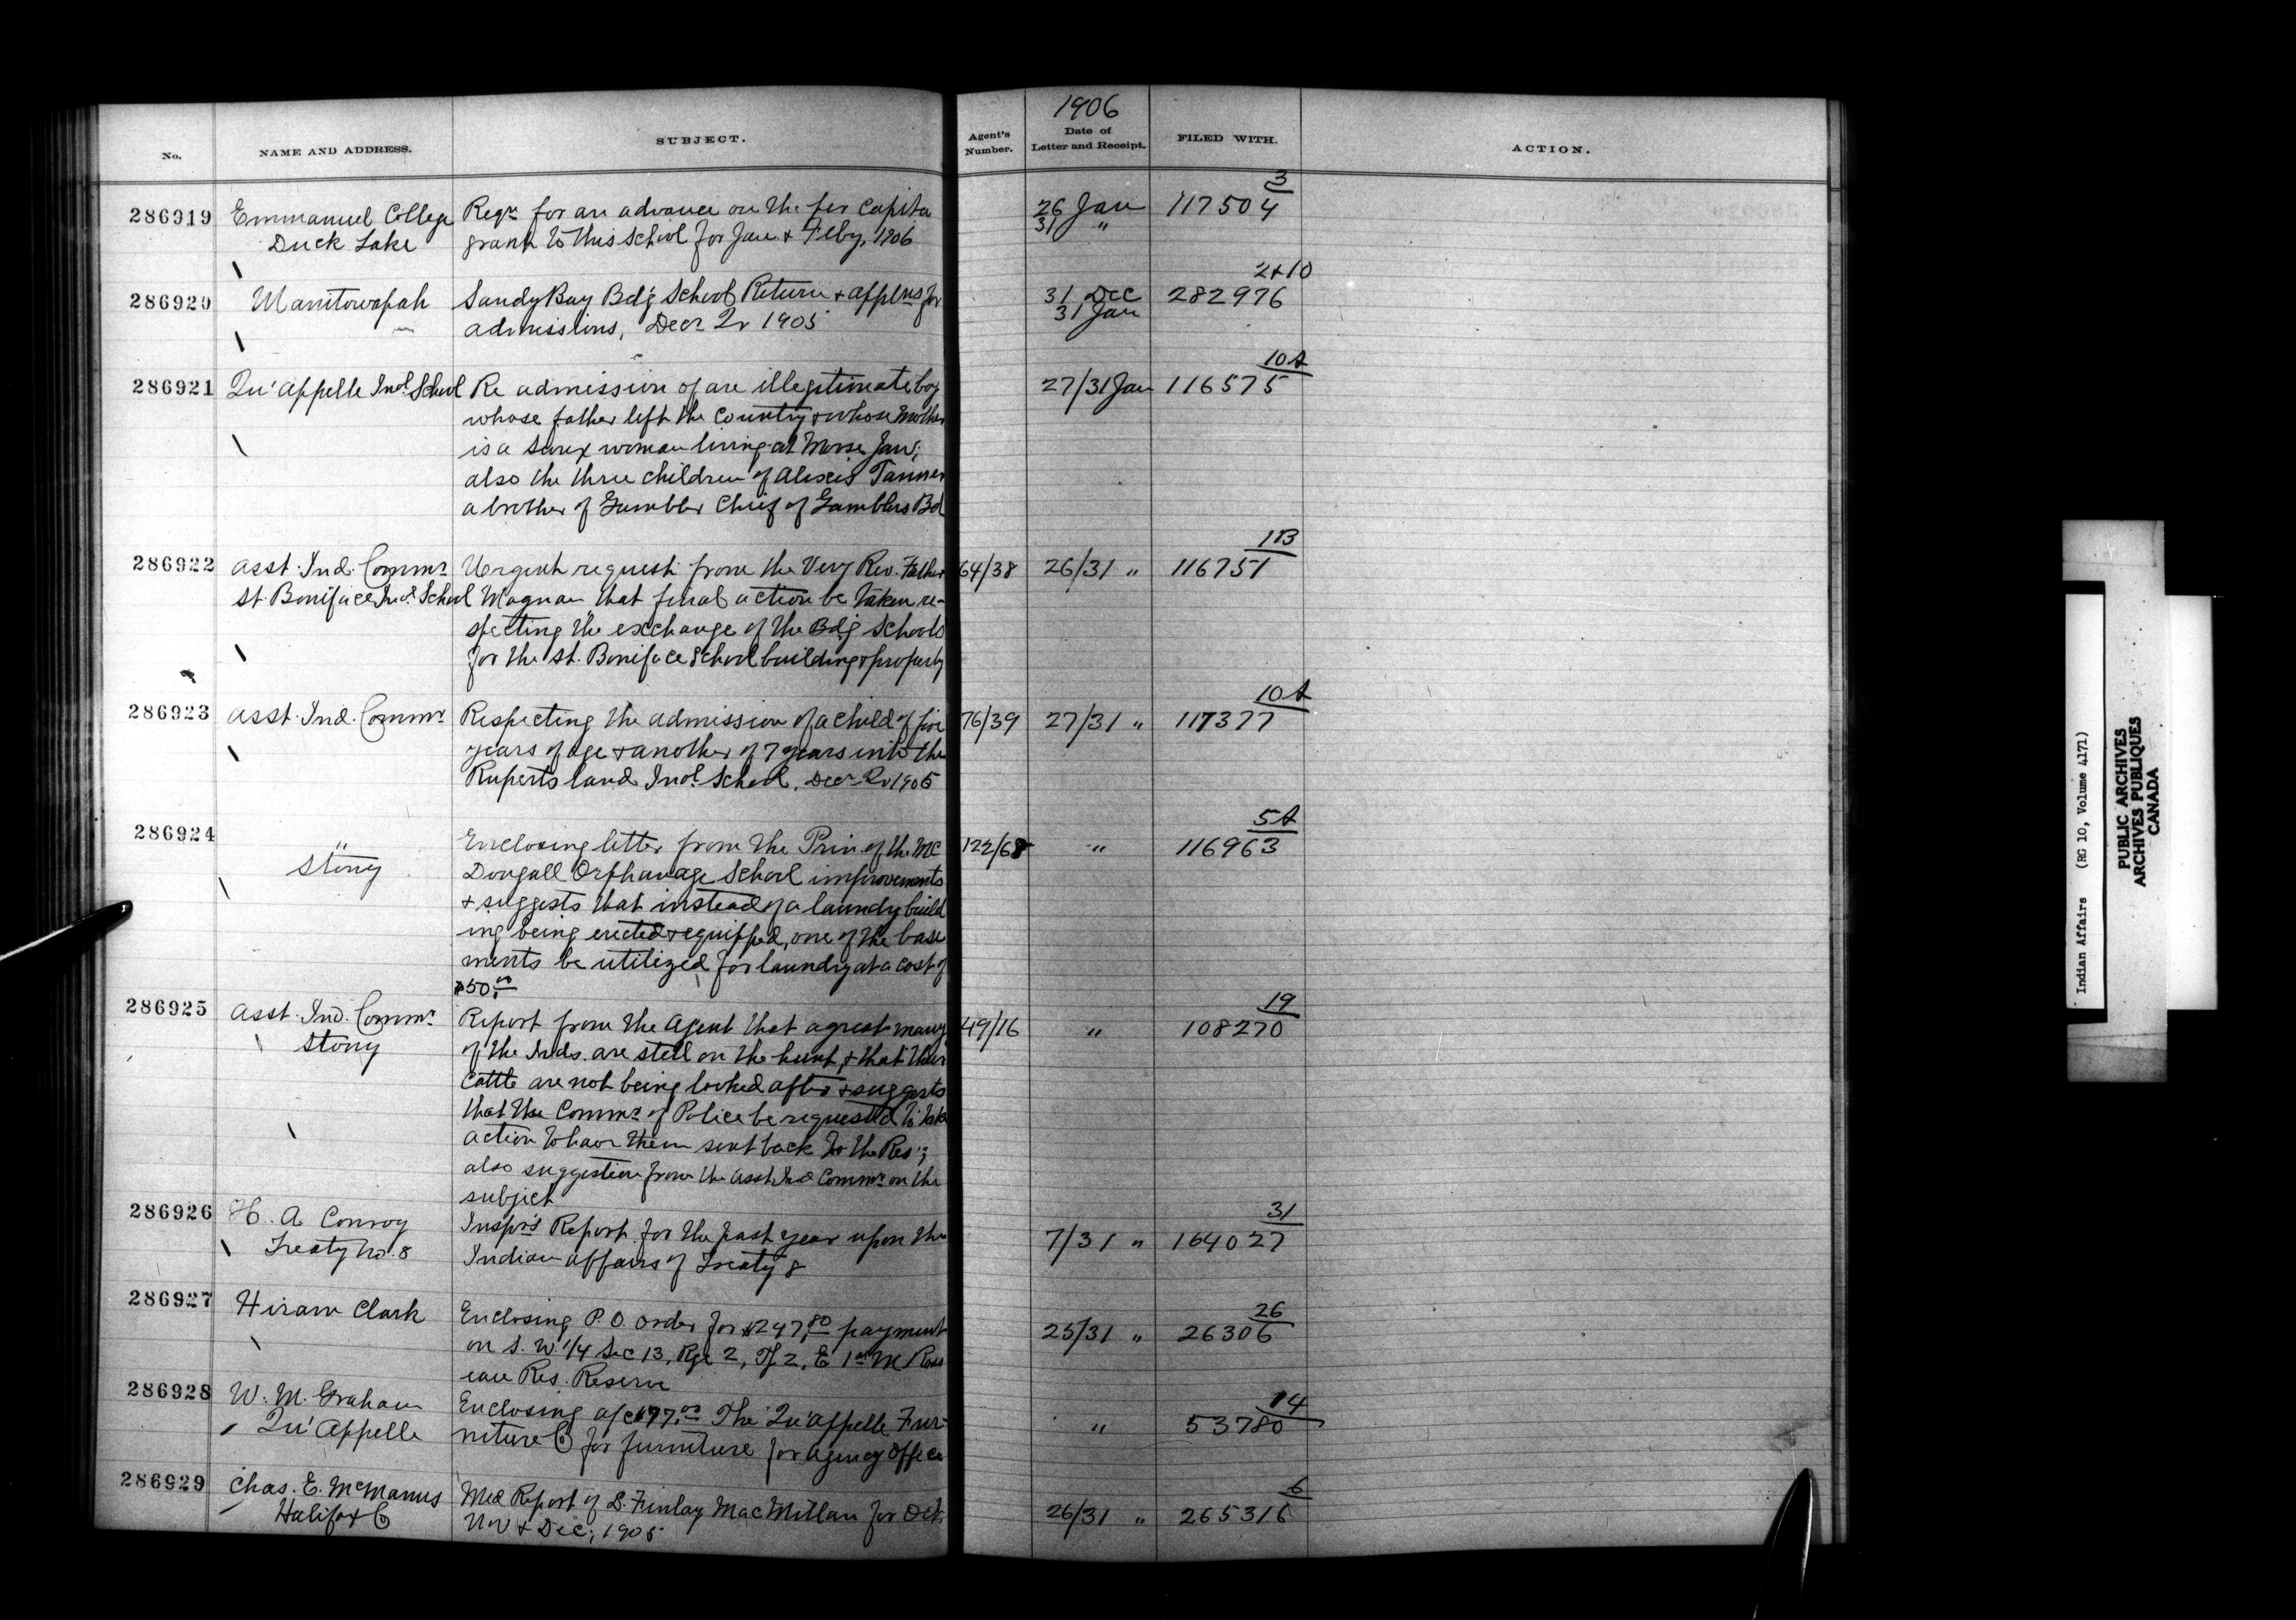 1906
No.
NAME AND ADDRESS.
SUBJECT.
Agent's Number.
Date of Letter and Receipt.
FILED WITH.
ACTION.
286919 Emmanuel College Reqn for an advance on the per Capita 26 Jan 117504 3
Duck Lake grant to this School for Jan. & Feby, 1906 31 "
286920 Manitowapah Sandy Bay Bd'g School Return & applns for 31 Dec 282976 2+10
admissions, Decr Qr 1905 31 Jan
286921 Qu'appelle Indl School Re admission of an illegitimate boy 27/31 Jan 116575 10A
whose father left the Country & whose Mother
is a Sioux woman living at Moose Jaw;
also the three children of Alexis Tanner
a brother of Gambler Chief of Gamblers Bd
286922 Asst. Ind. Commr Urgent request from the Very Rev. Father 64/38 26/31 " 116751 1B
St. Boniface Indl School Magnan that final action be taken re-
specting the exchange of the Bdg Schools
for the St. Boniface School building & property
286923 Asst. Ind. Commr Respecting the admission of a child of five 76/39 27/31 " 117377 10A
years of age & another of 7 years into the
Ruperts land Indl School, Decr Qr 1905
286924 " Enclosing letter from the Prin. of the Mc 122/68 " 116963 5A
Stony Dougall Orphanage School improvements
& suggests that instead of a laundry build
ing being erected & equipped, one of the base
ments be utilized for laundry at a cost of
$50.00
286925 Asst. Ind. Commr Report from the Agent that a great many 49/16 " 108270 19
Stony of the Inds. are still on the hunt, & that their
Cattle are not being looked after & suggests
that the Commr of Police be requested to take
action to have them sent back to the Res;
also suggestion from the Asst Ind Commr on the
subject
286926 H. A. Conroy Inspr's Report for the past year upon the 7/31 " 164027 31
Treaty No. 8 Indian affairs of Treaty 8
286927 Hiram Clark Enclosing P.O. order for $247.80 payment 25/31 " 26306 26
on S.W. 1/4 Sec 13, Rge 2, Tp 2, E 1st M Ross
eau Res. Reserve
286928 W. M. Graham Enclosing a/c $77.00 The Qu'appelle Fur- " 53780 14
Qu'Appelle niture Co for furniture for Agency Office
286929 Chas. E. McManus Med Report of D. Finlay MacMillan for Oct. 26/31 " 265316 6
Halifax Co Nov & Dec, 1905
Indian Affairs (RG 10, Volume 4171)
PUBLIC ARCHIVES
ARCHIVES PUBLIQUES
CANADA